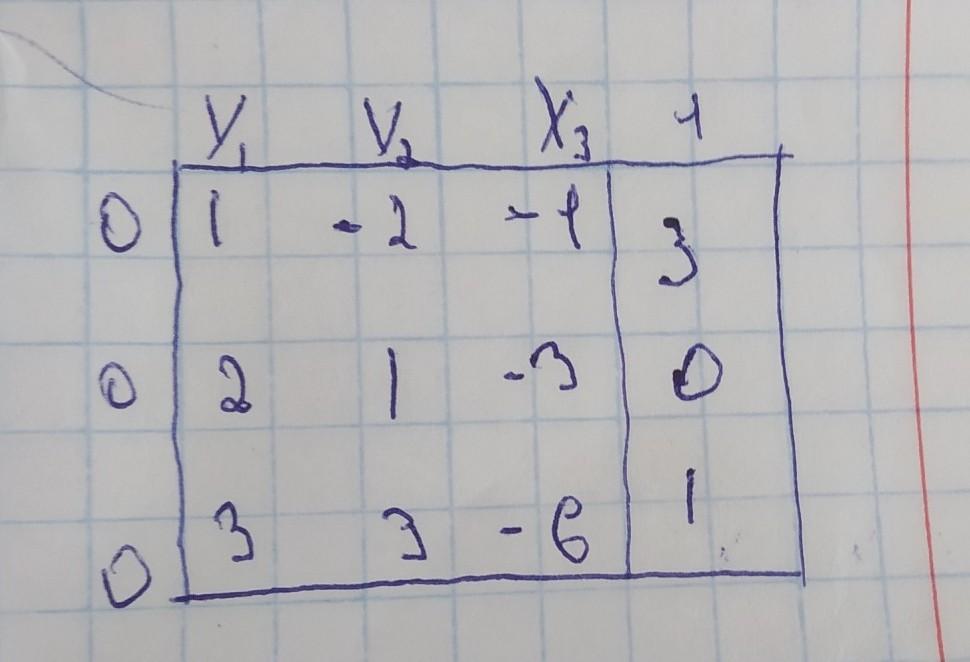 У₁ У₂ X₃ 1
0 1 -2 -1 3
0 2 1 -3 0
0 3 3 -6 1